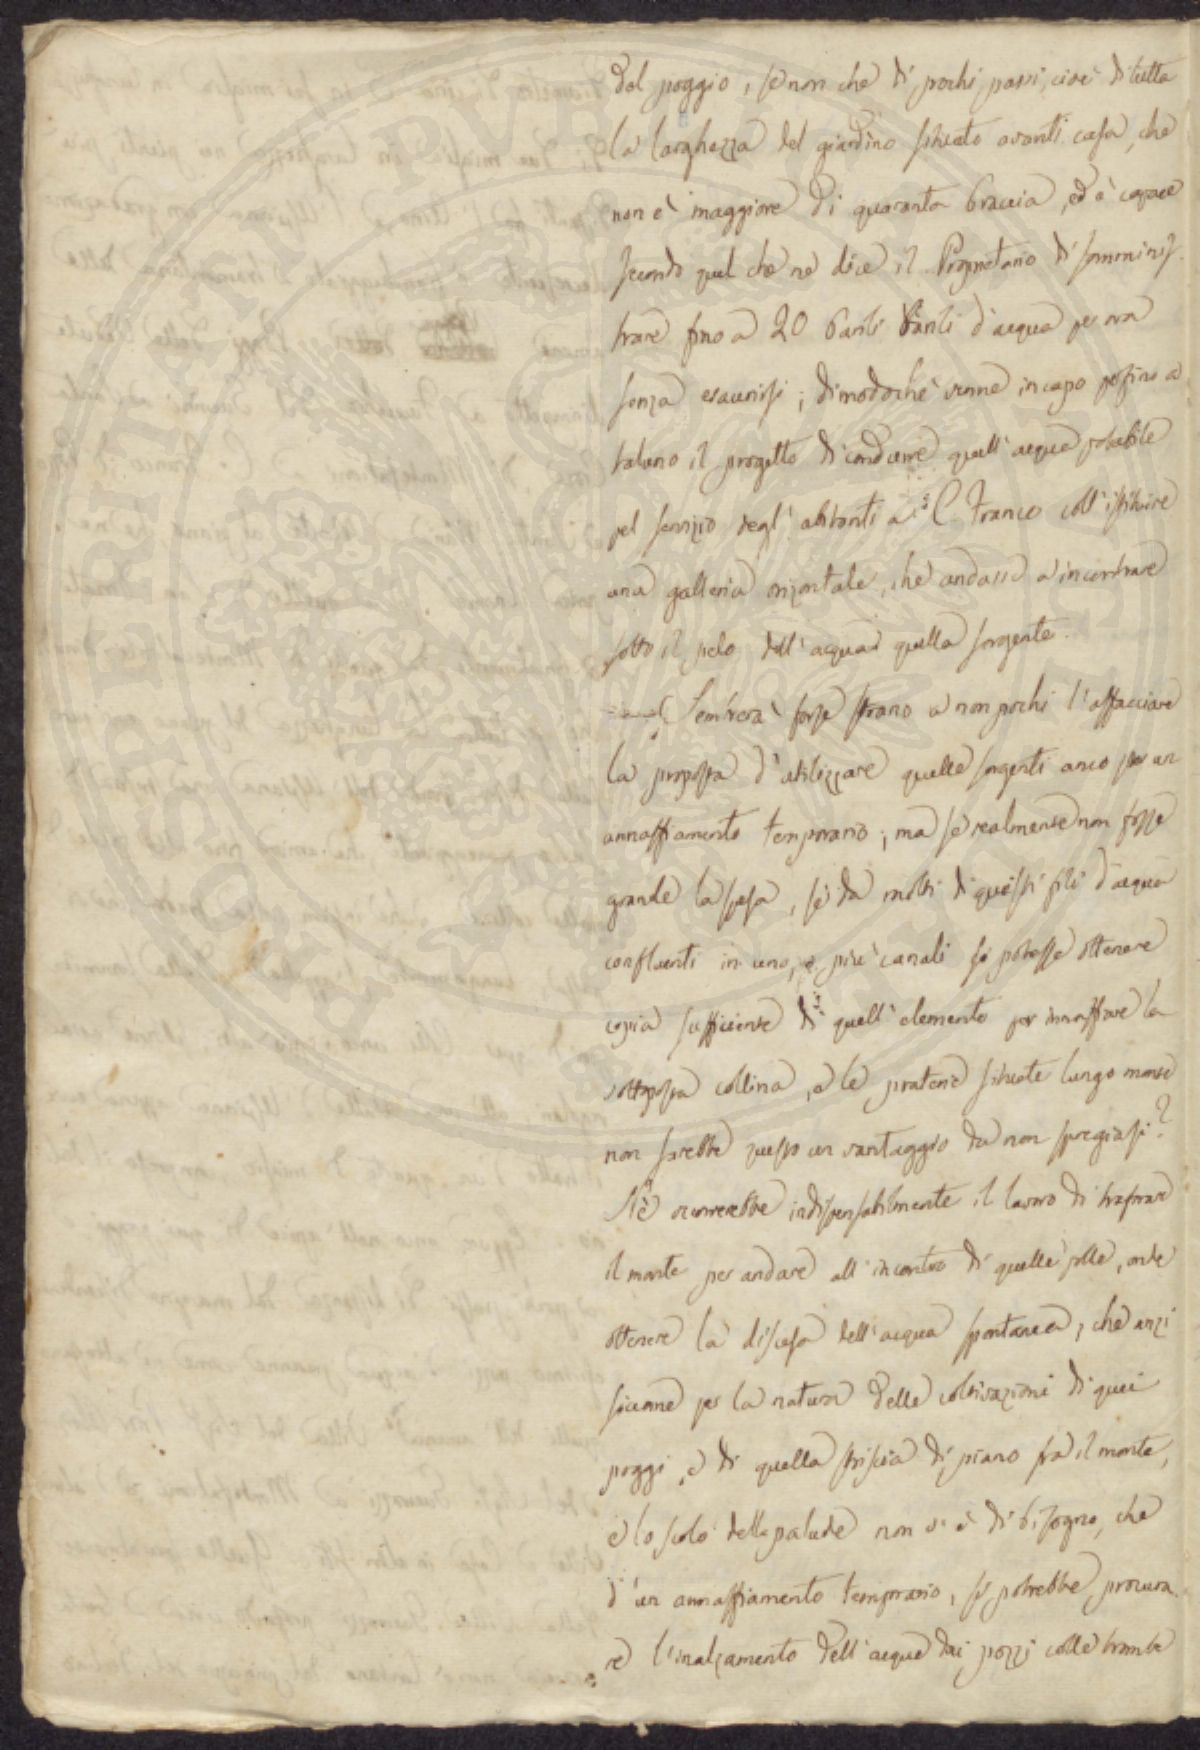 dal poggio, se non che di pochi passi, cioè di tutta
la larghezza del giardino situato avanti casa, che
non è maggiore di quaranta braccia, ed è capace
secondo quel che ne dice il Proprietario di sommini-
trare fino a 20 barili d'acqua per ora
senza esaurirsi; dimodochè venne in capo perfino a
taluno il progetto di condurre quell'acqua potabile
pel servizio degl'abitanti a C. Franco coll'istituire
una galleria orizontale, che andasse a incontrare
sotto il pelo dell'acqua quella sorgente.
Sembrerà forse strano a non pochi l'affacciare
la proposta d'utilizzare quelle sorgenti anco per un
annaffiamento temporario; ma se realmente non fosse
grande la spesa, se da molti di questi fili d'acqua
confluenti in uno, o più canali si potesse ottenere
copia sufficiente di quell'elemento per innaffiare la
sottoposta collina, e le praterie situate lungo monte
non sarebbe questo un vantaggio da non spregiarsi?
Nè occorrerebbe indispensabilmente il lavoro di traforare
il monte per andare all'incontro di quelle polle, onde
ottenere la discesa dell'acqua spontanea, che anzi
siccome per la natura delle coltivazioni di quei
poggi, e di quella striscia di piano fra il monte,
e lo scolo della palude non vi è di bisogno, che
d'un annaffiamento temporario, si potrebbe procura-
re l'inalzamento dell'acque dai pozzi colle trombe